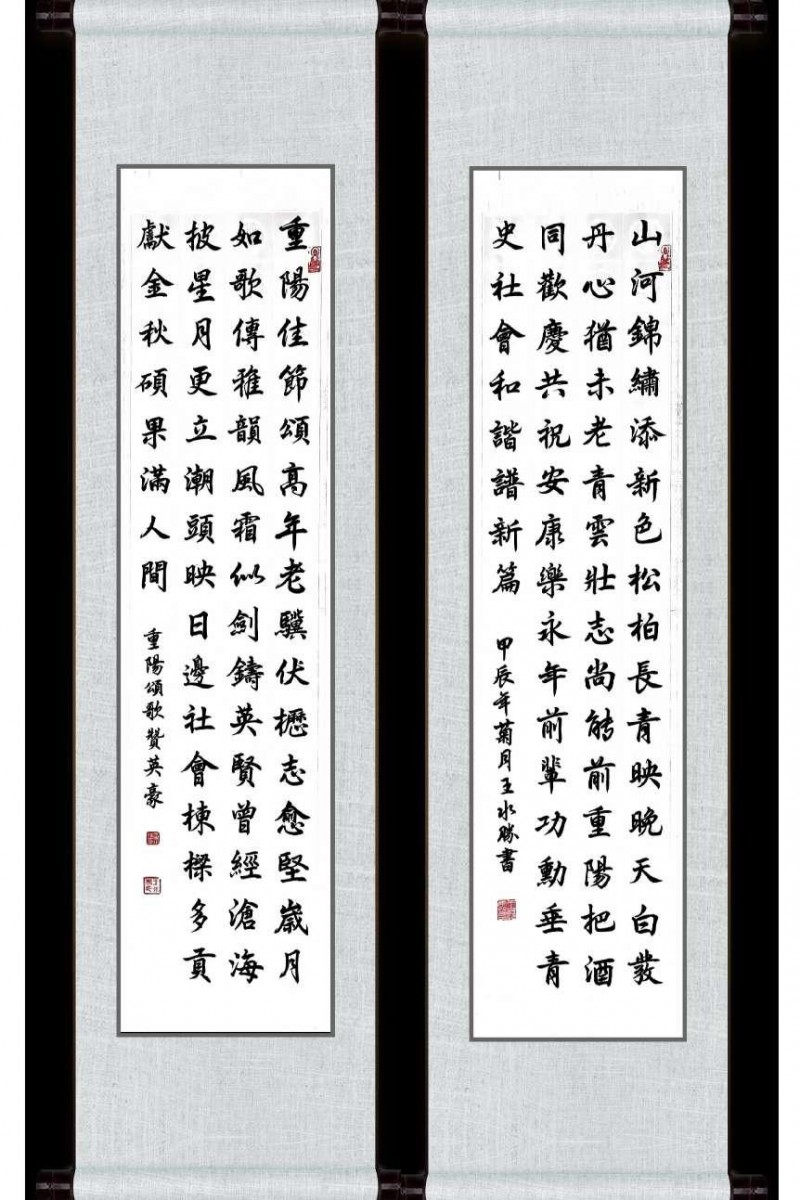 山河錦繡添新色松柏長青映晚天白髮
丹心猶未老青雲壯志尚能前重陽把酒
同歡慶共祝安康樂永年前輩功勳垂青
史社會和諧譜新篇
甲辰年菊月王水勝書
重陽佳節頌高年老驥伏櫪志愈堅歲月
如歌傳雅韻風霜似劍鑄英賢曾經滄海
披星月更立潮頭映日邊社會棟樑多貢
獻金秋碩果滿人間
重陽頌歌贊英豪